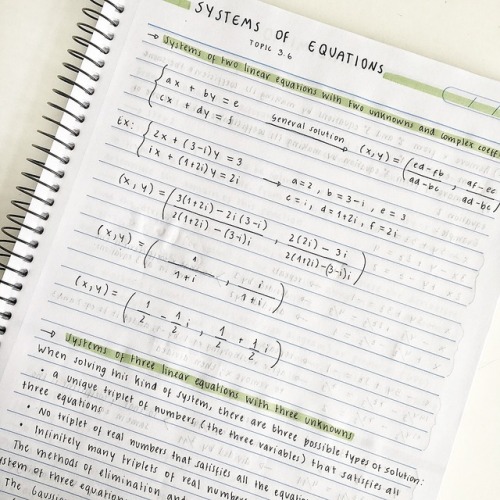 SYSTEMS OF EQUATIONS
TOPIC 3.6
→ Systems of two linear equations with two unknowns and complex coeff
{ax + by = e
cx + dy = f
General solution → (x,y) = (ed-fb/ad-bc, af-ec/ad-bc)
Ex: {2x + (3-i)y = 3
ix + (1+2i)y = 2i
→ a=2, b=3-i, e=3
c=i, d=1+2i, f=2i
(x,y) = (3(1+2i)-2i(3-i)/2(1+2i)-(3-i)i, 2(2i)-3i/2(1+2i)-(3-i)i)
(x,y) = (1/1+i, i/1+i)
(x,y) = (1/2 - 1/2 i, 1/2 + 1/2 i)
→ Systems of three linear equations with three unknowns
When solving this kind of system, there are three possible types of solution:
• a unique triplet of numbers (the three variables) that satisfies all
three equations
• No triplet of real numbers that satisfies all the equations
• Infinitely many triplets of real numbers
The methods of elimination and
system of three equations
The Gaussi